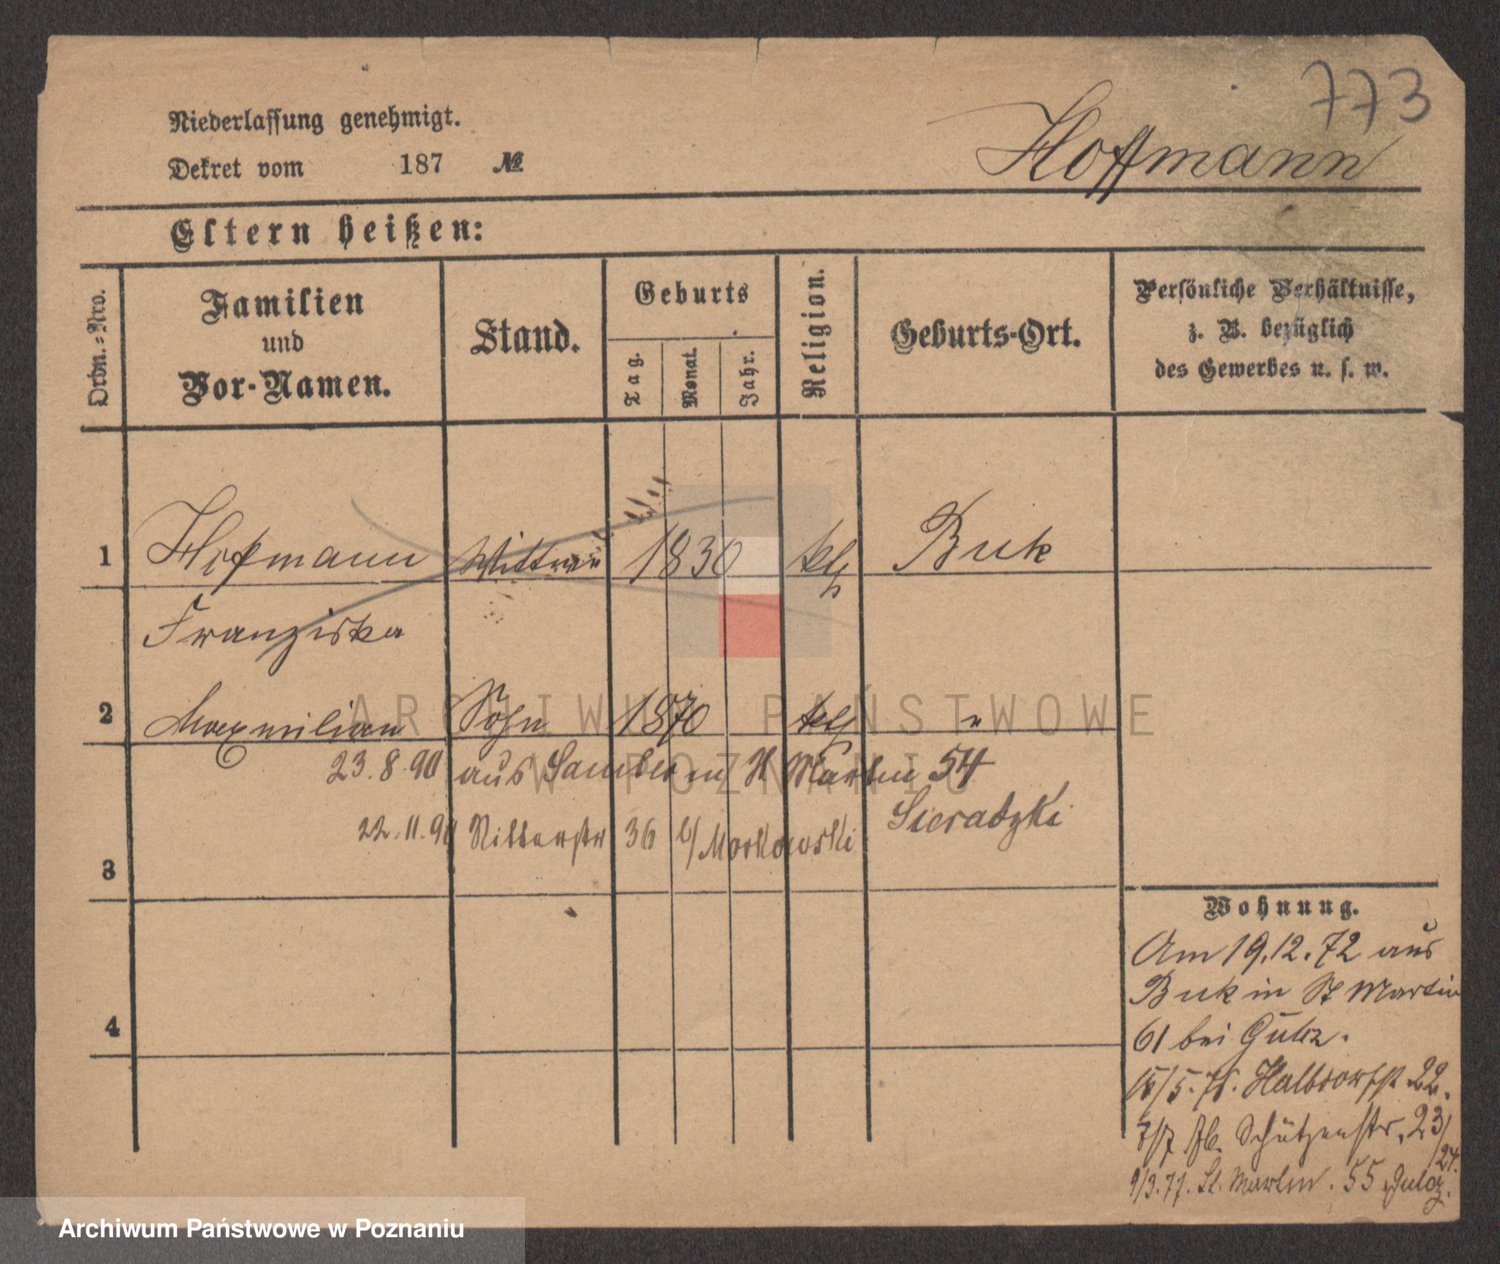 773
Niederlassung genehmigt.
Hoffmann
Dekret vom 187 №
Eltern heißen:
Ordn.=Nro.
Familien
und
Vor-Namen.
Stand.
Geburts
Tag.
Monat.
Jahr.
Religion.
Geburts-Ort.
Persönliche Verhältnisse,
z. B. bezüglich
des Gewerbes u. s. w.
1 Hofmann Wittwe 1830 kth Buk
Franziska
2 Maxmilian Sohn 1870 kth "
23.8.90 aus in St Martin 54
Sieradzki
22.11.90 Ritterstr 36 b/ Morkowski
3
4
Wohnung.
Am 19.12.72 aus
Buk in St Martin
61 bei Gulcz.
15/5. 76. Halbdorfstr 22.
7/7 Schützenstr. 23/
24.
9/3.77. St. Martin. 55 Gulcz.
ARCHIWUM PAŃSTWOWE
W POZNANIU
Archiwum Państwowe w Poznaniu